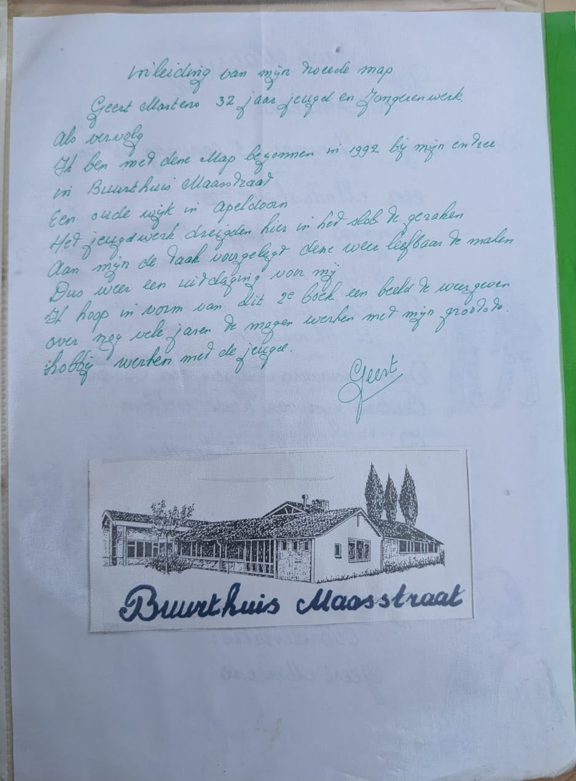 Inleiding van mijn tweede map
Geert Martens 32 jaar jeugd en Jongerenwerk
Als vervolg
Ik ben met deze Map begonnen in 1992 bij mijn entree
in Buurthuis Maasstraat
Een oude wijk in Apeldoorn
Het jeugdwerk dreigden hier in het slob te geraken
Aan mijn de taak voorgelegt deze weer leefbaar te maken
Dus weer een uitdaging voor mij
Ik hoop in vorm van dit 2e boek een beeld te weergeven
over nog vele jaren te mogen werken met mijn grootste
hobby werken met de jeugd.
Geert
Buurthuis Maasstraat